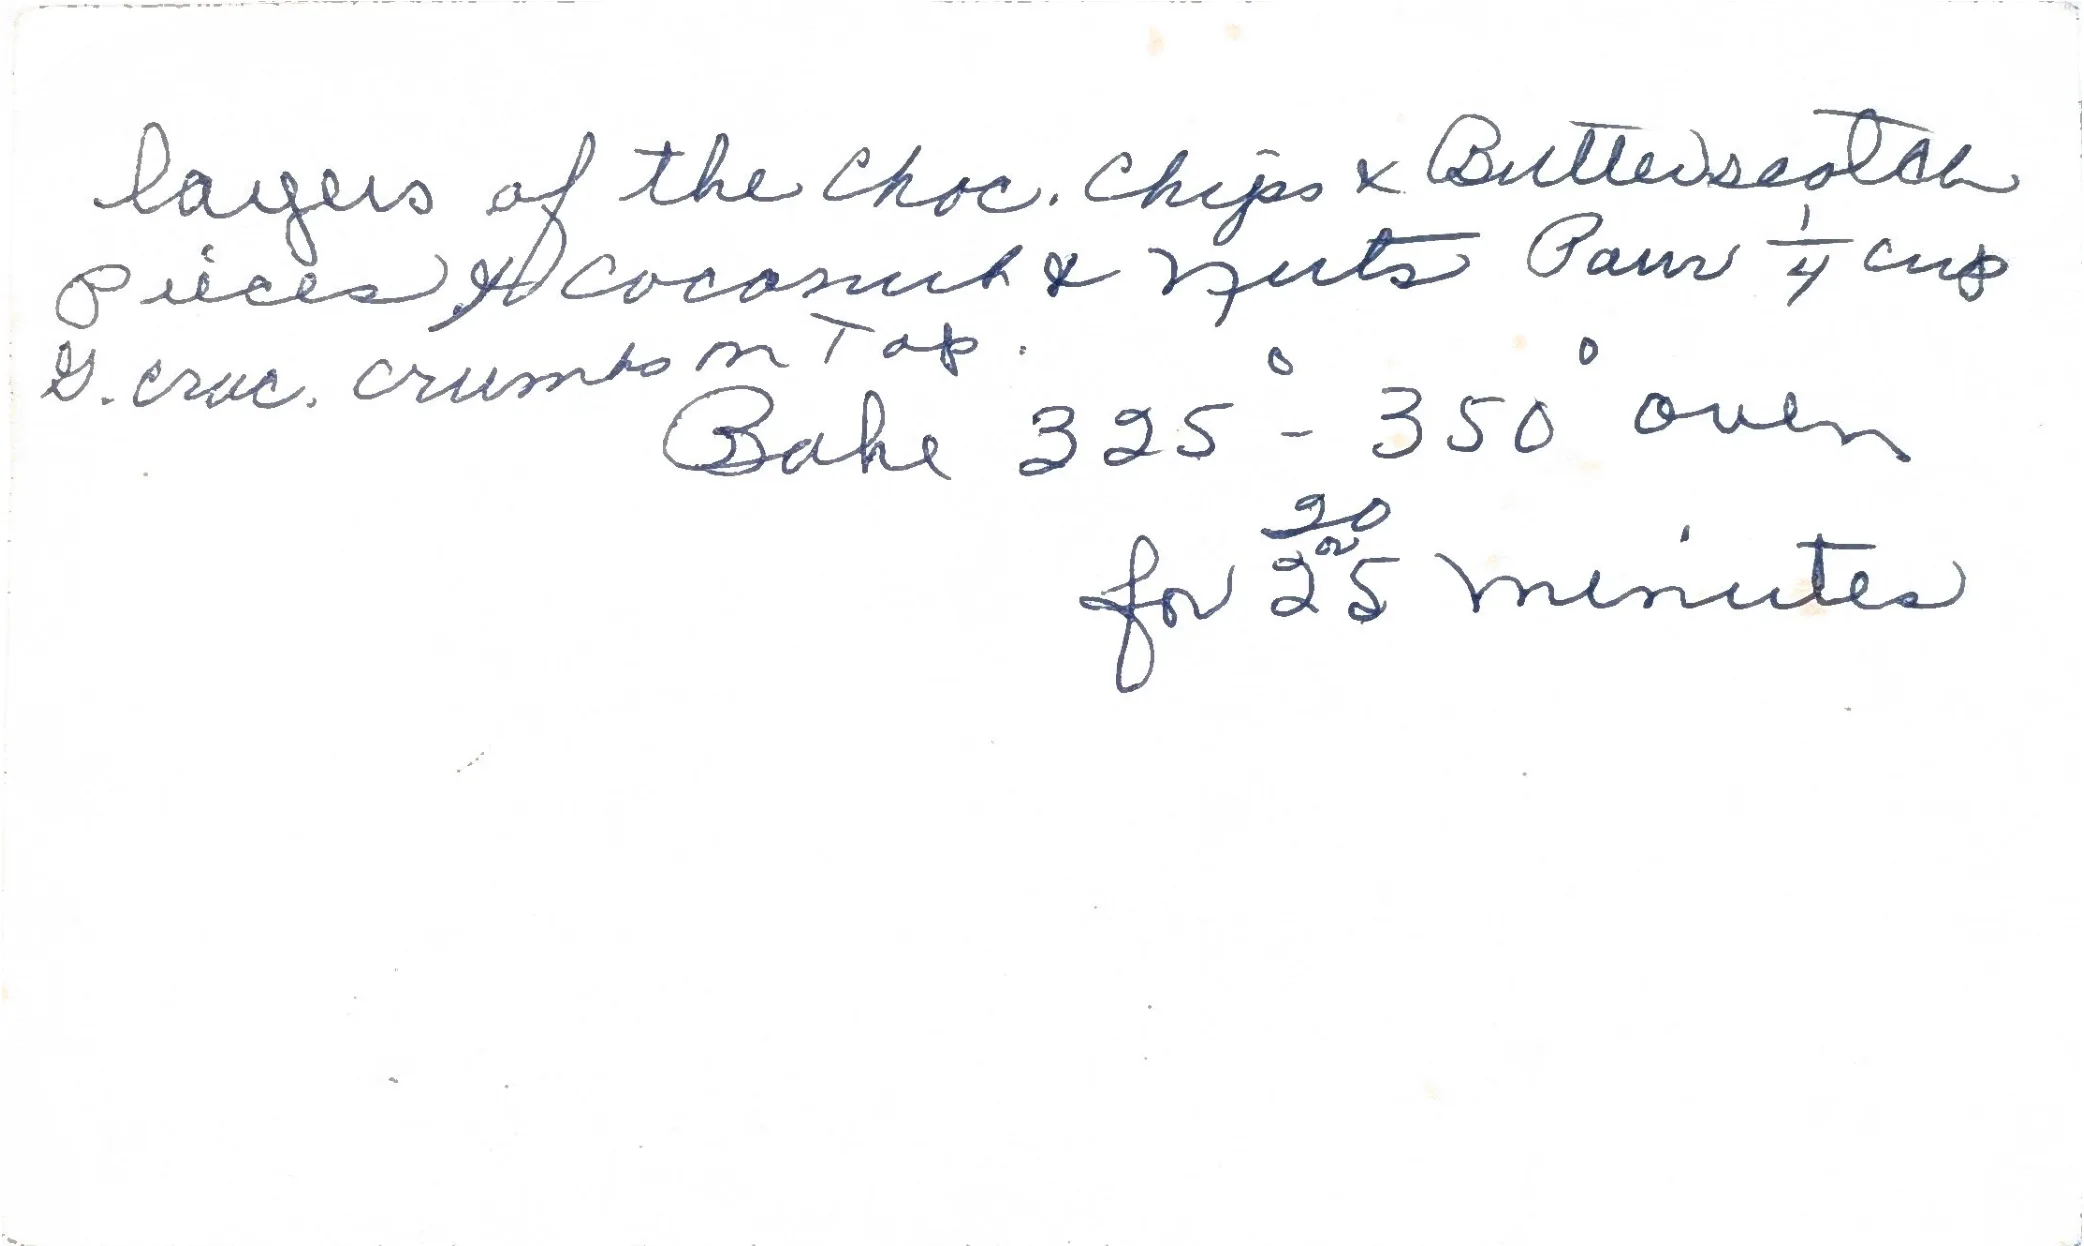 layers of the Choc. Chips & Butterscotch
Pieces & Coconut & Nuts Pour 1/4 cup
G. crac. crumbs on Top.
Bake 325° - 350° oven
for 20 or 25 minutes